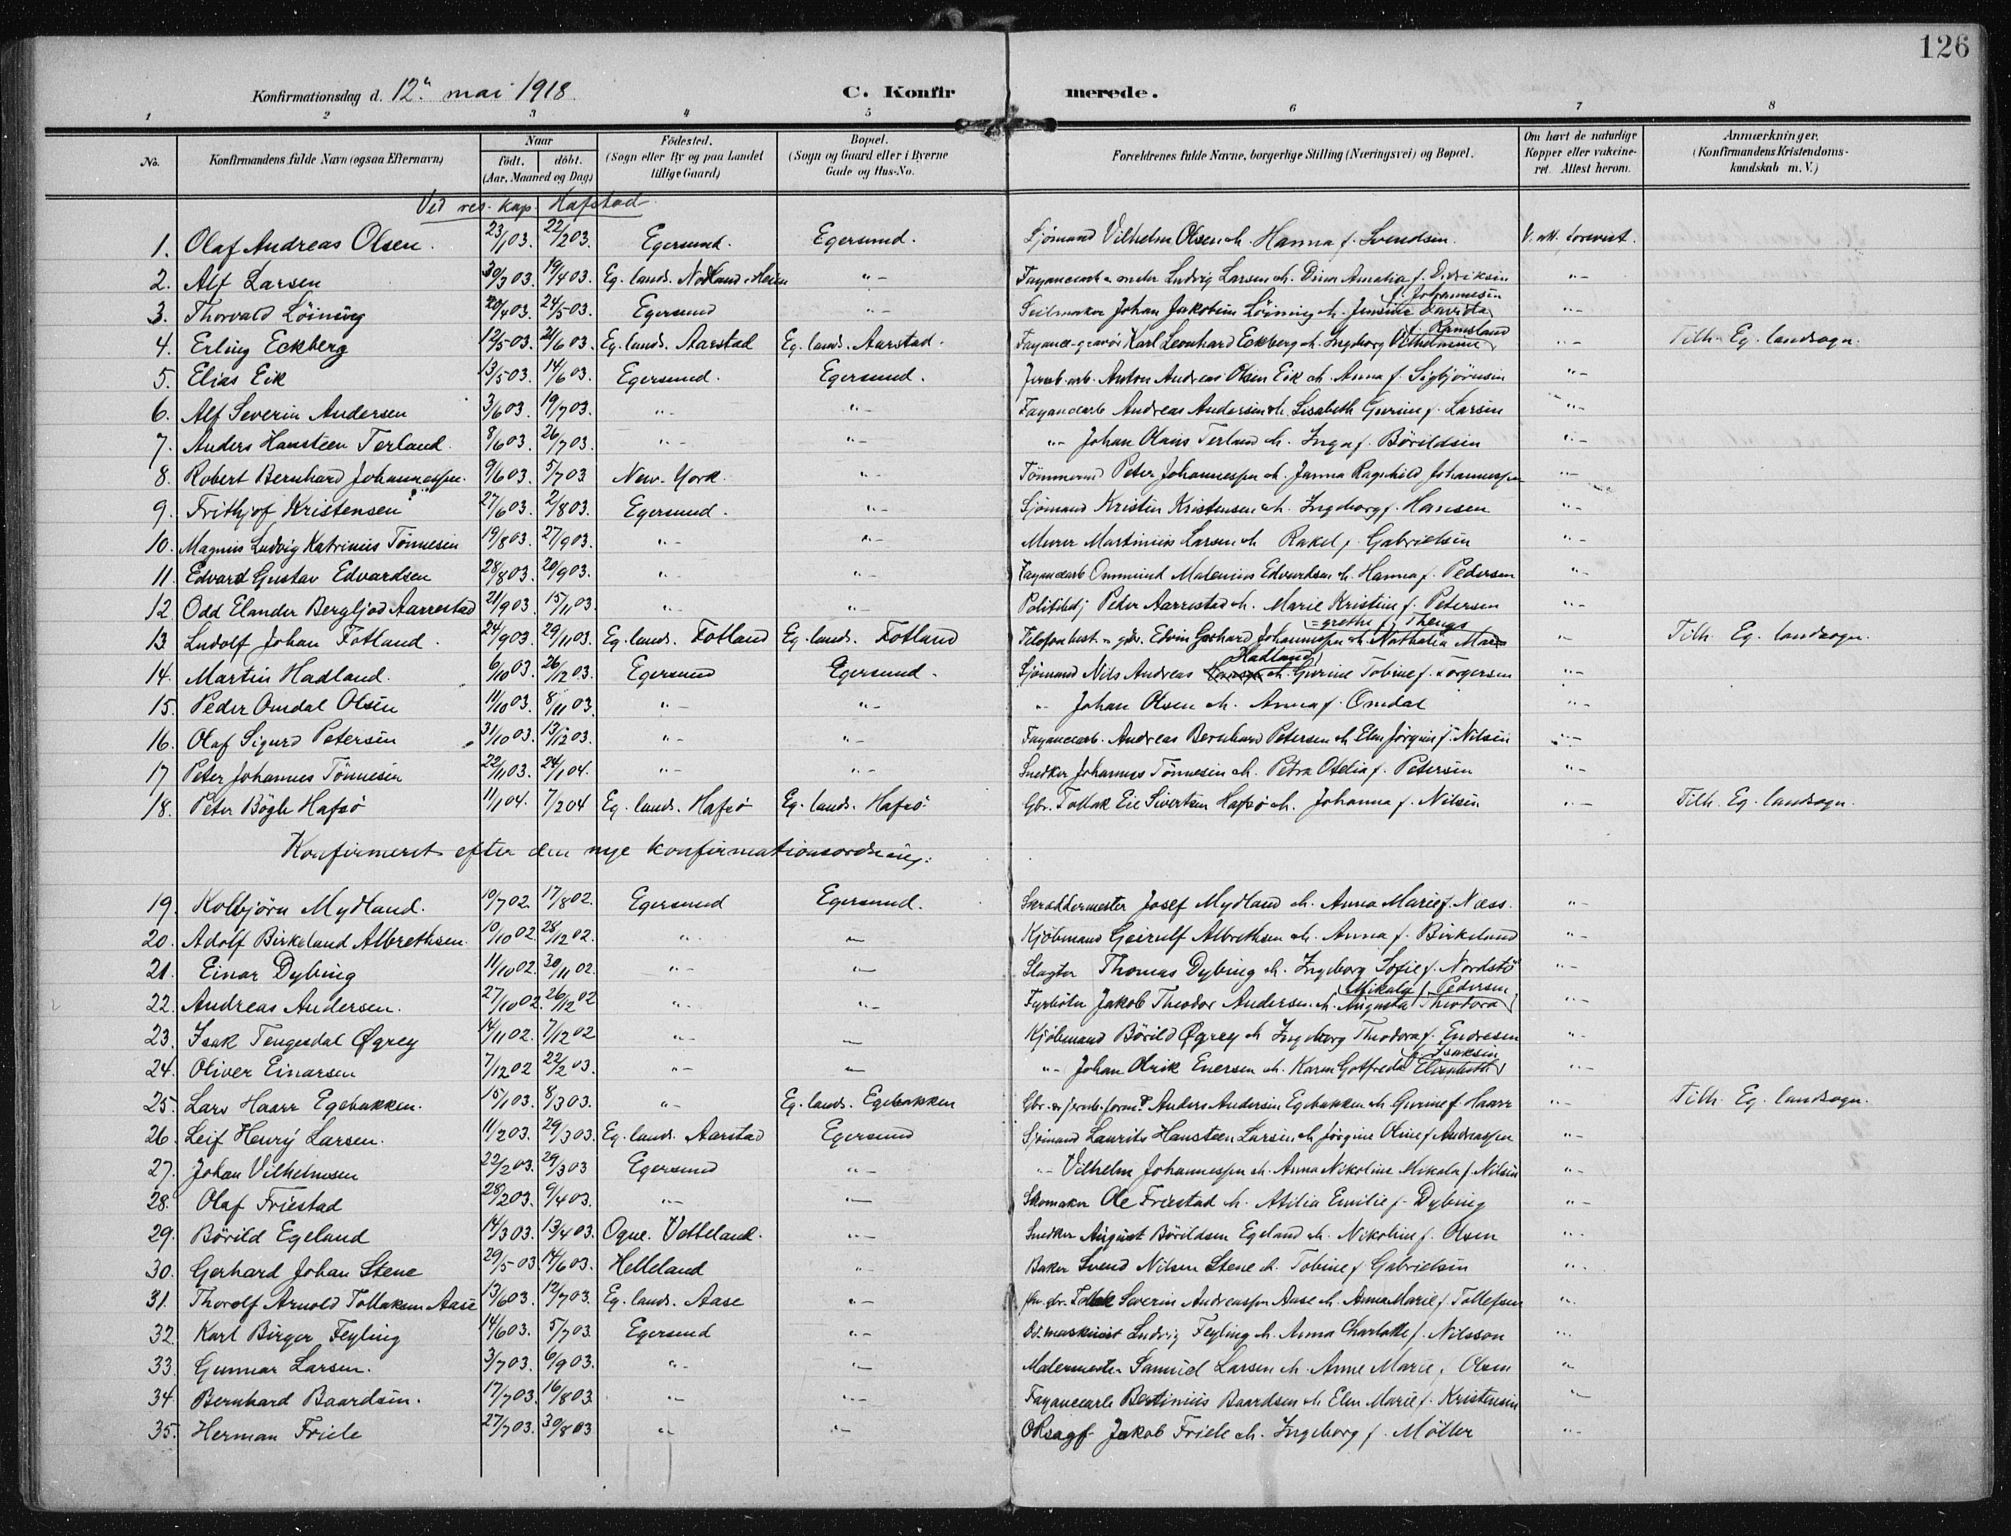 126
Konfirmationsdag d. 12te mai 1918. C. Konfirmerede.
1 2 3 4 5 6 7 8
No. Konfirmandens fulde Navn (ogsaa Efternavn) Naar født. døbt. (Aar, Maaned og Dag) Fødested. (Sogn eller By og paa Landet tillige Gaard) Bopæl. (Sogn og Gaard eller i Byerne Gade og Hus-No. Forældrenes fulde Navne, borgerlige Stilling (Næringsvei) og Bopæl. Om havt de naturlige Kopper eller vakcineret. Attest herom. Anmærkninger. (Konfirmandens Kristendomskundskab m. V.)
Ved res. kap. Hafstad.
1. Olaf Andreas Olsen. 23/1 03. 22/2 03. Egersund. Egersund. Sjömand Vilhelm Olsen & h. Hanna f. Svendsen. V. att. forevist.
2. Alf Larsen 30/3 03. 19/4 03. Eg. lands. Nodland "- Ludvig Larsen & h. Dina Amalia f. Didriksen "-
3. Thorvald Löining 20/4 03. 24/5 03. Egersund "- Seilmaker Johan Jakobsen Löining & h. Jensine Davida f. Johannesen "-
4. Erling Eckberg 12/5 03. 21/6 03. Eg. lands. Aarstad Eg. lands. Aarstad. Fayance-gravör Karl Leonhard Eckberg & h. Ingeborg Vilhelmine f. Ramsland "- Tilh. Eg. landsogn.
5. Elias Eik 13/5 03. 14/6 03. Egersund. Egersund. Jernb. arb. Anton Andreas Olsen Eik & h. Anna f. Sigbjörnsen "-
6. Alf Severin Andersen 3/6 03. 19/7 03. "- "- Fayancearb Andreas Andersen & h. Lisabeth Gurine f. Larsen "-
7. Anders Hansteen Terland. 8/6 03. 26/7 03. "- "- "- Johan Olaus Terland & h. Inga f. Börildsen "-
8. Robert Bernhard Johannessen. 9/6 03. 5/7 03. New-York. "- Tömmermd Peter Johannessen & h. Janna Ragnhild Johannessen "-
9. Frithjof Kristensen 27/6 03. 2/8 03. Egersund. "- Sjömand Kristen Kristensen & h. Ingeborg f. Hansen "-
10. Magnus Ludvig Katrinius Tönnesen 19/8 03. 27/9 03. "- "- Murer Martinius Larsen & h Rakel f. Gabrielsen "-
11. Edvard Gustav Edvardsen 28/8 03. 20/9 03. "- "- Fayancearb Ommund Malenius Edvardsen & h. Hanna f. Pedersen "-
12. Odd Elander Bergljod Aarrestad 21/9 03. 15/11 03. "- "- Politibetj Peder Aarrestad & h. Marie Kristine f. Petersen "-
13 Ludolf Johan Fotland. 24/9 03. 29/11 03. Eg. lands. Fotland Eg. lands. Fotland Telefonbest. & gbr. Edvin Gerhard Johannessen & h Nathalia Mar=grethe f. Thengs "- Tilh. Eg. landsogn.
14. Martin Hadland. 6/10 03. 26/12 03. Egersund Egersund. Sjömand Nils Andreas Hadland & h. Gurine Tobine f. Torgersen "-
15. Peder Omdal Olsen 11/10 03. 8/11 03. "- "- "- Johan Olsen & h. Anna f. Omdal "-
16. Olaf Sigurd Petersen 31/10 03. 13/12 03. "- "- Fayancearb. Andreas Bernhard Petersen & h Elen Jörgine f. Nilsen "-
17 Peter Johannes Tönnesen 22/11 03. 24/1 04. "- "- Snedker Johannes Tönnesen & h. Petra Otelia f. Petersen "-
18. Peter Bögh Hafsö 11/1 04. 7/2 04 Eg. lands. Hafsö Eg. lands. Hafsö. Gbr. Tollak Eie Sivertsen Hafsö & h. Johanna f. Nilsen "- Tilh. Eg. landsogn.
Konfirmeret efter den nye konfirmationsordning:
19. Kolbjörn Mydland. 10/7 02. 17/8 02. Egersund Egersund. Skræddermester Josef Mydland & h. Anna Marie f. Næss. "-
20. Adolf Birkeland Albrethsen. 10/10 02. 28/12 02. "- "- Kjöbmand Geirulf Albrethsen & h. Anna f. Birkeland "-
21. Einar Dybing 11/10 02. 30/11 02. "- "- Slagter Thomas Dybing & h. Ingeborg Sofie f. Nordstö "-
22. Andreas Andersen. 27/10 02. 26/12 02 "- "- Fyrböter Jakob Theodor Andersen & h. Augusta Theodora Mikala f. Pedersen "-
23. Isak Tengesdal Øgrey 14/11 02. 7/12 02 "- "- Kjöbmand Börild Øgrey & h Ingeborg Theodora f. Endresen "-
24. Oliver Einarsen 7/12 02 22/2 03. "- "- "- Johan Olrik Enersen & h. Karen Gotfreda Elisabeth f. Isaksen "-
25. Lars Haarr Egebakken. 15/1 03. 8/3 03. "- Eg. lands. Egebakken Gbr. & jernb. formd Anders Andersen Egebakken & h Gurine f. Haarr "- Tilh. Eg. landsogn.
26. Leif Henry Larsen. 11/2 03. 29/3 03. Eg. lands. Aarstad Egersund Sjömand Laurits Hansteen Larsen & h Jörgine Oline f Andreassen "-
27. Johan Vilhelmsen 22/2 03. 29/3 03 Egersund "- "- Vilhelm Johannessen & h. Anna Nikoline Mikala f. Nilsen "-
28. Olaf Friestad 28/2 03. 9/4 03. "- "- Skomaker Ole Friestad & h. Atilia Emilie f. Dybing "-
29. Börild Egeland 14/3 03. 13/4 03. Ogne. Vetteland. "- Snedker August Börildsen Egeland & h. Nikoline f. Olsen "-
30. Gerhard Johan Stene 29/5 03 14/6 03. Helleland "- Baker Svend Nilsen Stene & h. Tobine f Gabrielsen "-
31. Thorolf Arnold Tollaksen Aase 13/6 03. 12/7 03. Eg. lands. Aase "- gbr. Tollak Severin Andreassen Aase & h. Anna Marie f. Tollefsen "-
32. Karl Birger Feyling 14/6 03. 5/7 03. Egersund "- Ds. maskinist Ludvig Feyling & h. Anna Charlotte f. Nilsson "-
33. Gunnar Larsen. 3/7 03. 6/9 03. "- "- Malermester Samuel Larsen & h. Anne Marie f. Olsen "-
34. Bernhard Baardsen. 17/7 03. 16/8 03. "- "- Fayancearb Bertinius Baardsen & h Elen Marie f. Kristensen "-
35. Herman Friele 27/7 03. 30/8 03 "- "- ORsagf. Jakob Friele & h. Ingeborg f. Möller "-